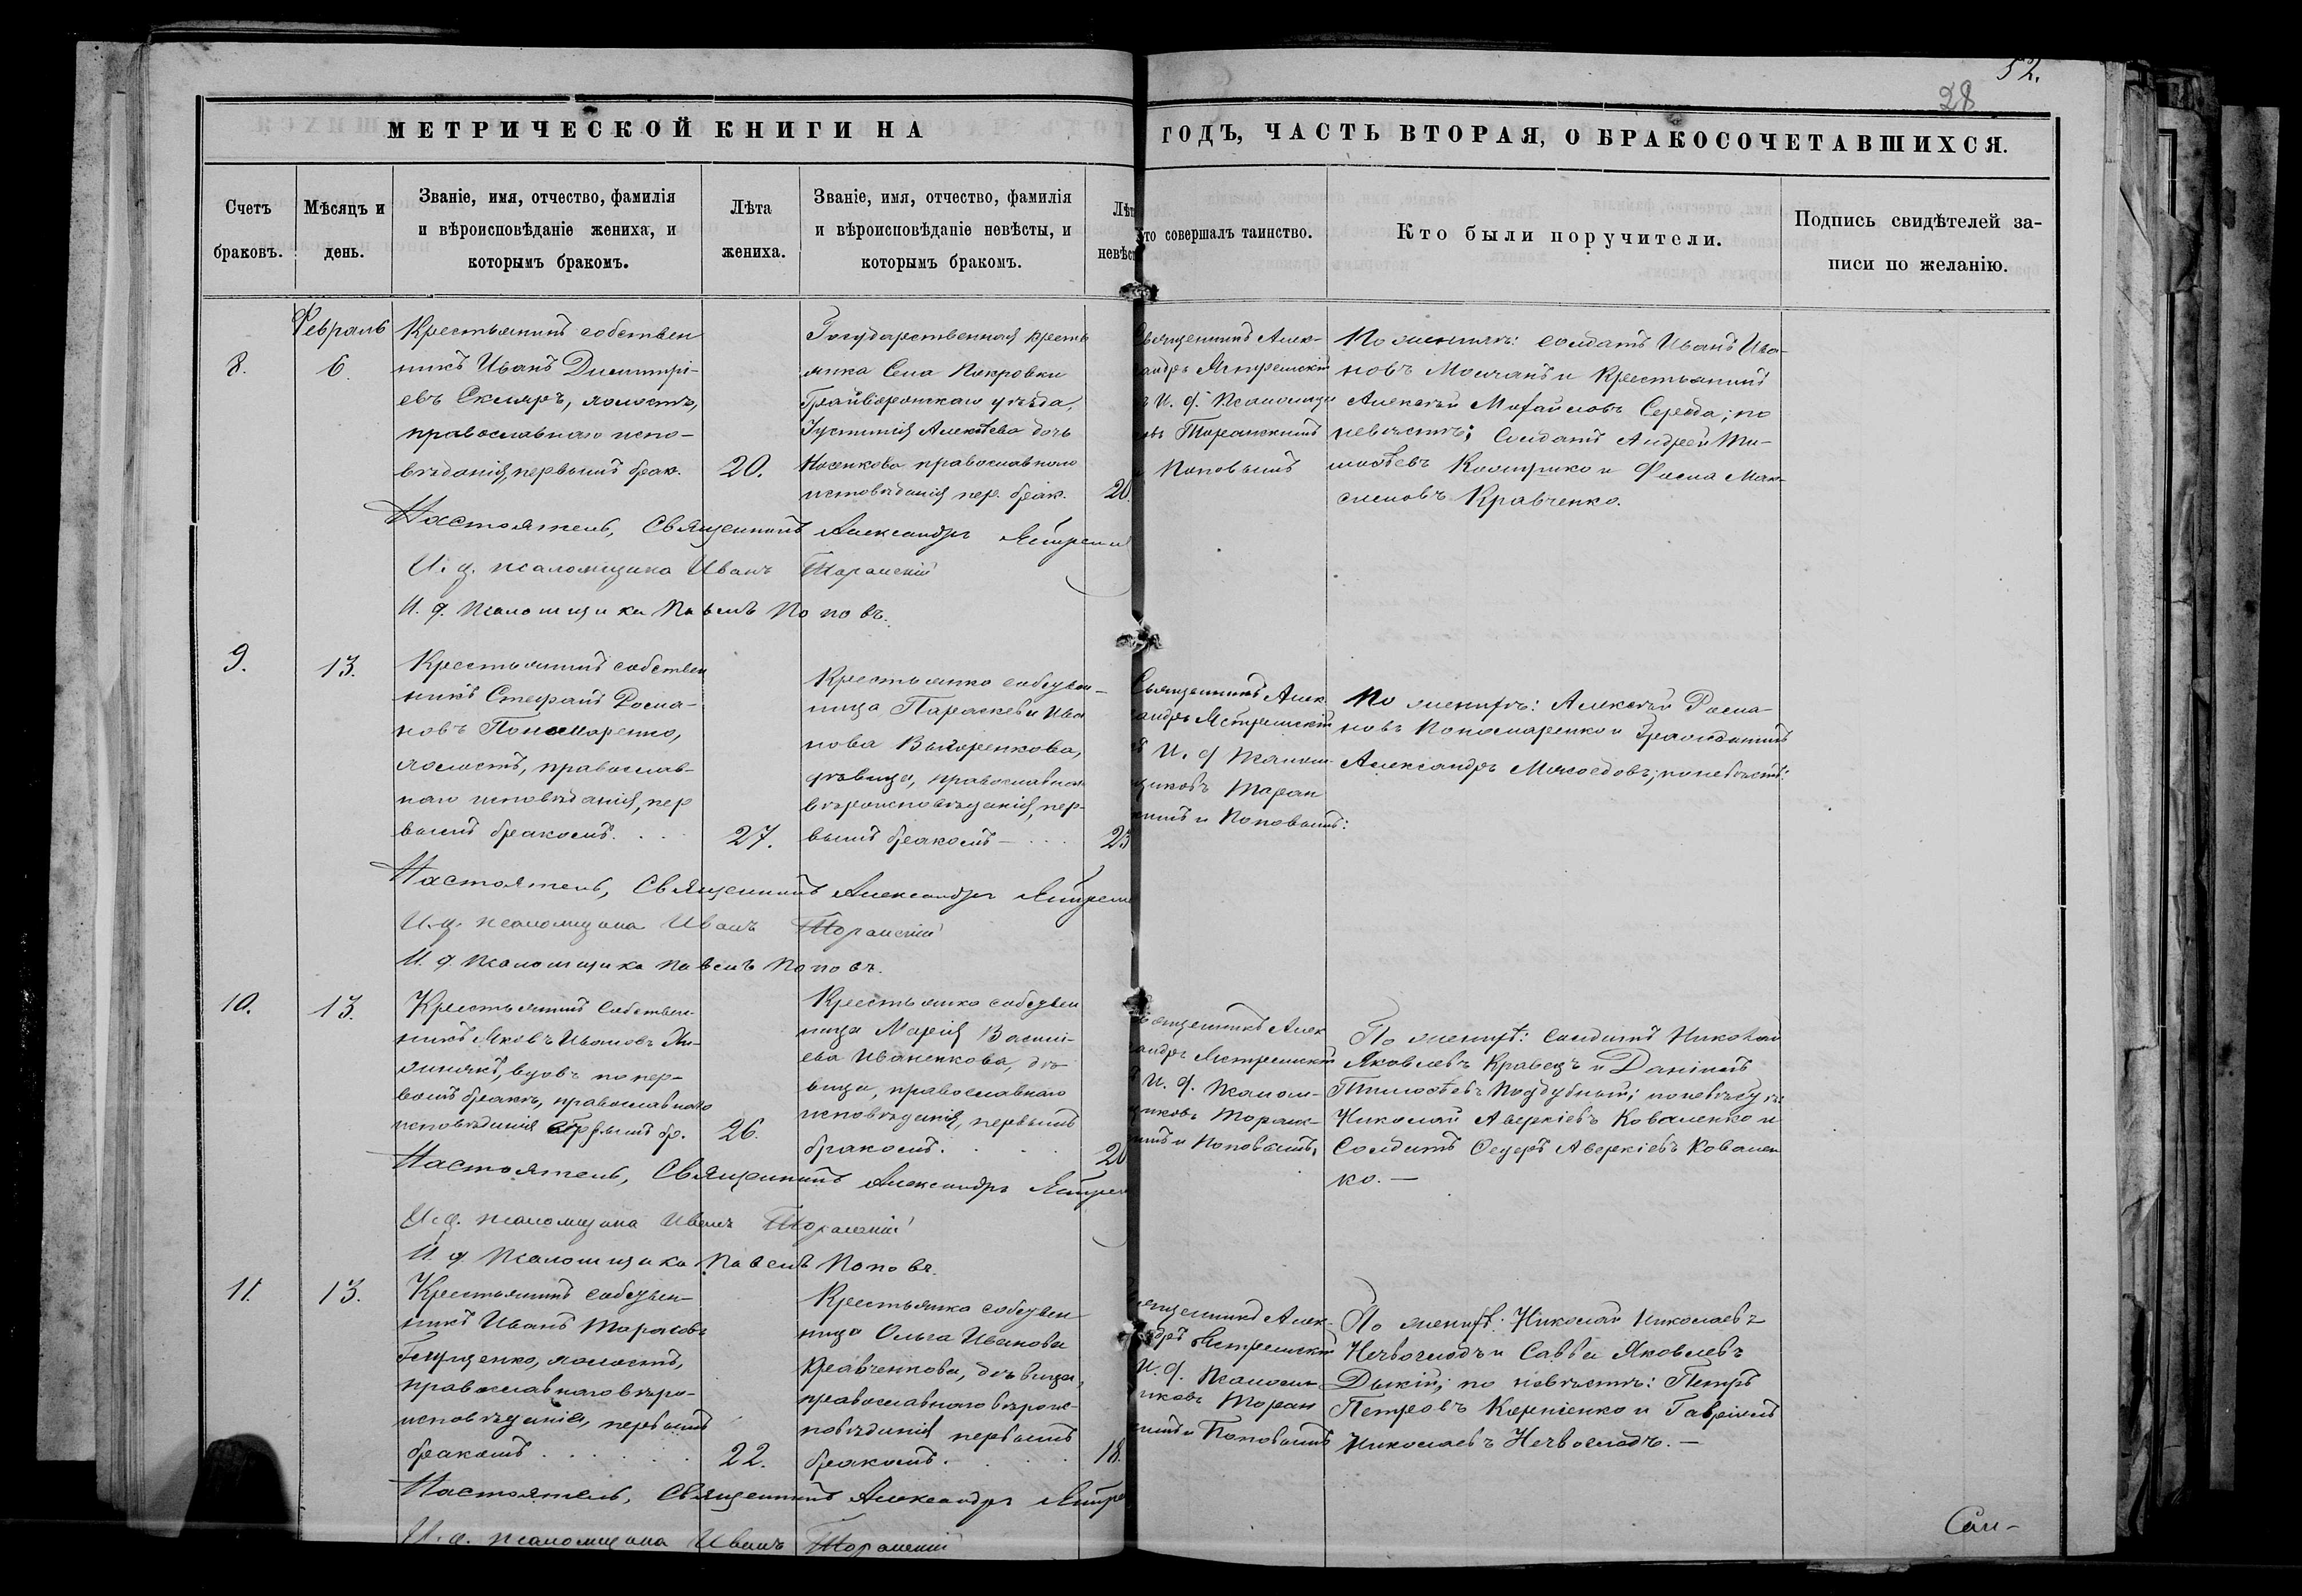 52.
28
МЕТРИЧЕСКОЙ КНИГИ НА
ГОДЪ, ЧАСТЬ ВТОРАЯ, О БРАКОСОЧЕТАВШИХСЯ.
Счетъ
браковъ.
Мѣсяцъ и
день.
Званіе, имя, отчество, фамилія
и вѣроисповѣданіе жениха, и
которымъ бракомъ.
Лѣта
жениха.
Званіе, имя, отчество, фамилія
и вѣроисповѣданіе невѣсты, и
которымъ бракомъ.
совершалъ таинство.
Кто были поручители.
Подпись свидѣтелей за-
писи по желанію.
Февраль
8.
6
Крестьянинъ собствен
никъ Иванъ Димитрі-
евъ Скляръ, холостъ,
православнаго испо-
вѣданія, первымъ брак.
20.
Государственная кресть
янка Села Покровки
Грайворонскаго уѣзда,
Іустинія Алексѣева дочь
Носенкова православнаго
исповѣданія пер. брак.
20.
Священникъ Алек-
Ястремскій
И. д. Псаломщи
Торанскимъ
Поповымъ
По женихѣ: солдатъ Иванъ Ива-
новъ Молчанъ и Крестьянинъ
Алексѣй Михайловъ Середа; по
невѣстѣ: Солдатъ Андрей Ти-
моѳеевъ и Ѳома Мак-
симовъ Кравченко.
Настоятель, Священникъ Александръ
И. д. псаломщика Иванъ Торанскій
И. д. Псаломщика Павелъ Поповъ.
9.
13.
Крестьянинъ собствен
никъ Стефанъ Рома-
новъ Пономаренко,
холостъ, православ-
наго исповѣданія, пер
вымъ бракомъ. . .
27.
Крестьянка собствен-
ница Параскева Ива
нова
дѣвица, православнаго
вѣроисповѣданія, пер-
вымъ бракомъ - . . .
23
Священникъ Алек
Ястремскій
И. д. Псалом
щиковъ Торан
и Поповымъ:
По женихѣ: Алексѣй Рома-
новъ Пономаренко и Гражданинъ
Александръ Мясоедовъ; по невѣстѣ:
Настоятель, Священникъ Александръ
И. д. псаломщика Иванъ Торанскій
И. д. Псаломщика Павелъ Поповъ.
10.
13.
Крестьянинъ Собствен-
никъ Яковъ Ивановъ
вдовъ по пер-
вомъ бракѣ, православнаго
исповѣданія бр.
26.
Крестьянка собствен
ница Марія Василі-
ева Иваненкова, дѣ-
вица, православнаго
исповѣданія, первымъ
бракомъ. . . .
20
Алек
Ястремскій
И. д. Псалом-
щиковъ Торан-
и Поповымъ,
По женихѣ: Солдатъ Николай
Яковлевъ Кравецъ и Даніилъ
Тимоѳеевъ Поддубный; по невѣстѣ
Николай Аверкіевъ Коваленко и
Солдатъ Ѳедоръ Аверкіевъ Ковален
ко. —
Настоятель, Священникъ Александръ
И. д. псаломщика Иванъ Торанскій
И. д. Псаломщика Павелъ Поповъ.
11.
13.
Крестьянинъ собствен-
никъ Иванъ Тарасовъ
холостъ,
православнаго вѣро-
исповѣданія, первымъ
бракомъ . . . . .
22.
Крестьянка собствен
ница Ольга Иванова
Кравченкова, дѣвица,
православнаго вѣроис-
повѣданія первымъ
бракомъ. . . .
18.
Алек-
Ястремскій
И. д. Псалом-
Торан
и Поповымъ
По женихѣ: Николай Николаевъ
Нечволодъ и Савва Яковлевъ
Дикій; по невѣстѣ: Петръ
Петровъ Корніенко и Гавріилъ
Николаевъ Нечволодъ. —
Настоятель, Священникъ Александръ
И. д. псаломщика Иванъ Торанскій